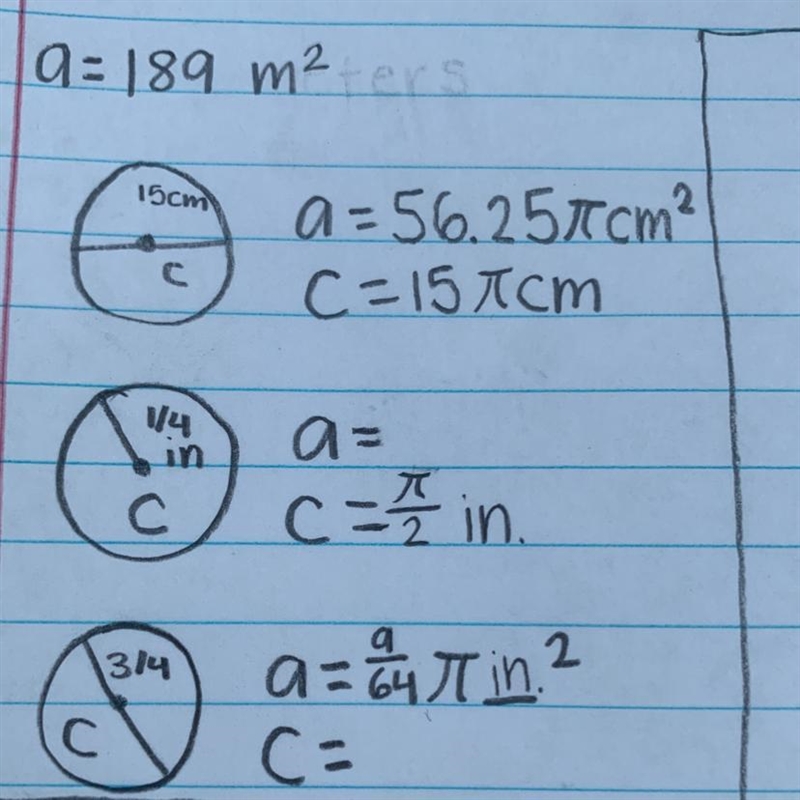 a = 189 m²
15cm
C
a = 56.25πcm²
C = 15πcm
1/4
in
C
a =
C = π/2 in.
3/4
C
a = 9/64 π in.²
C =